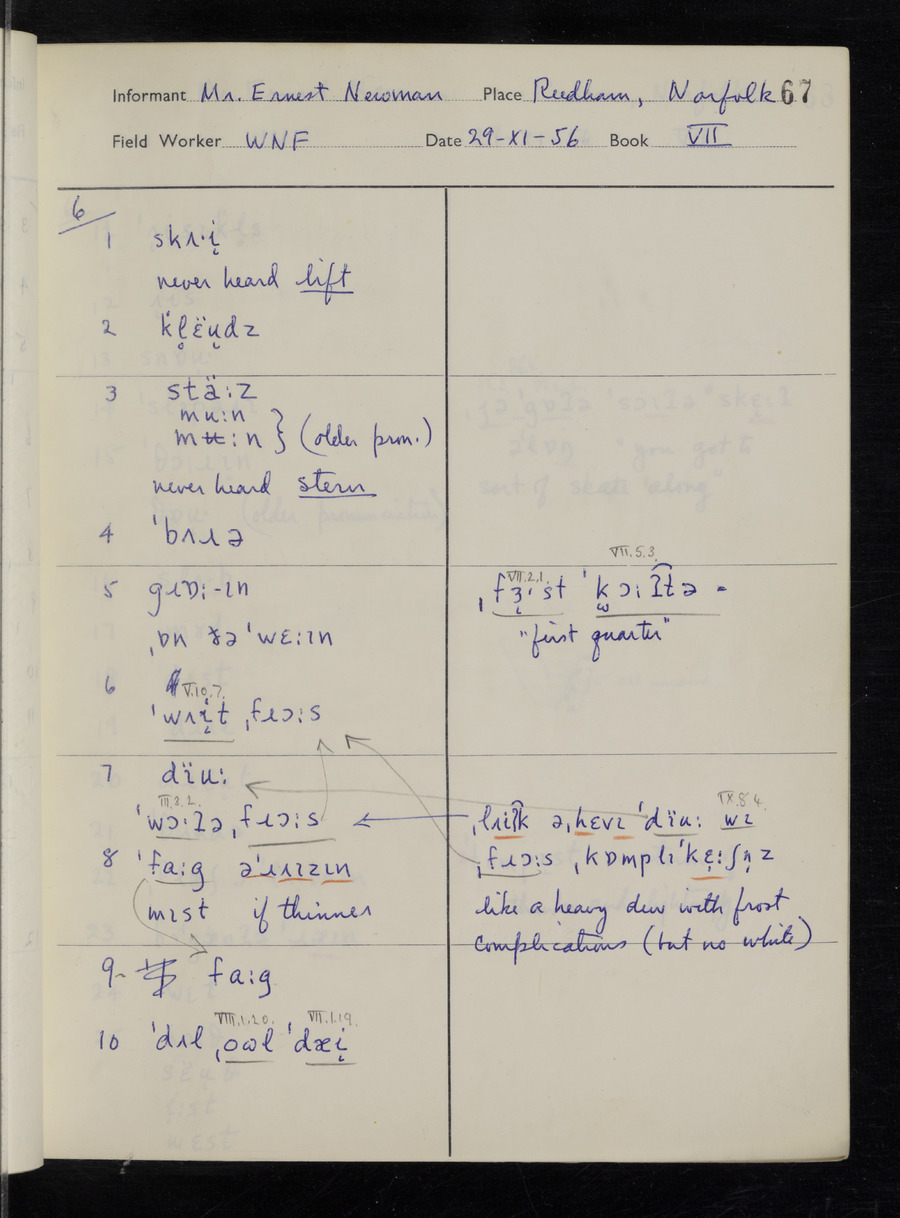 Informant Mr. Ernest Newman Place Reedham, Norfolk 67
Field Worker WNF Date 29-XI-56 Book VII
6
1 skʌ·i̞
never heard lift
2 kl̥ëu̞dz
3 stä:z
mu:n
mʉ:n } (older pron.)
never heard stern
4 ˈbʌɹə
5 gɹɒ:-ɪn
ˌɒn ðə ˈwɛ:ɪn
6 V.10.7.
ˈwʌi̞t ˌfɹɔ:s
7 dïu:
III.3.2.
ˈwɔ:ʔə ˌfɹɔ:s
8 ˈfa:g əˈɹɪzɪn
mɪst if thinner
9 fa:g
VIII.1.20. VII.1.19.
10 ˈdʌl ˌoωl ˈdæi̞
VII.5.3.
VII.2.1.
"first quarter"
IX.8.4.
əˌhɛvɪ ˈdïu: wɪ
ˌfɹɔ:s ˌkɒmplɪˈkɛ:ʃn̩z
like a heavy dew with frost
complications (but no white)